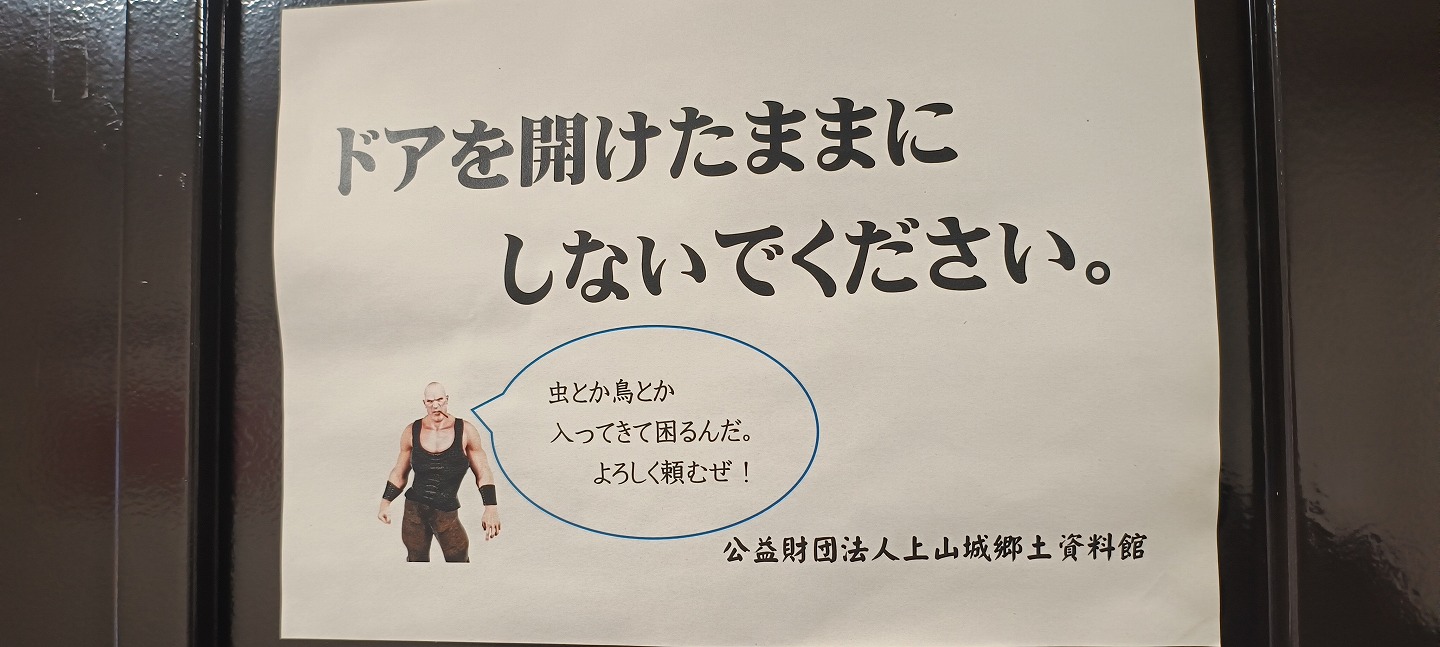 ドアを開けたままに
しないでください。
虫とか鳥とか
入ってきて困るんだ。
よろしく頼むぜ！
公益財団法人上山城郷土資料館